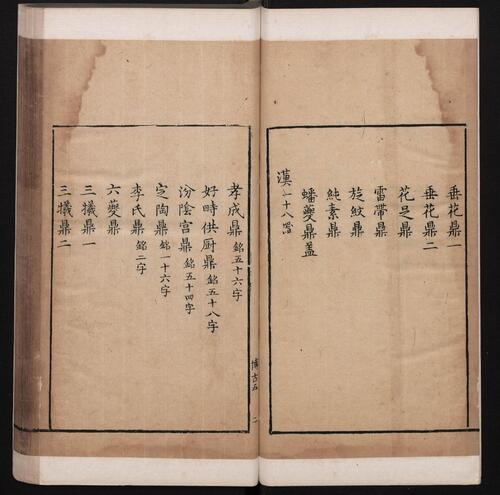 垂花鼎一
垂花鼎二
花足鼎
雷帶鼎
旋紋鼎
純素鼎
蟠夔鼎蓋
漢一十八器
孝成鼎 銘五十六字
好畤供厨鼎 銘五十八字
汾陰宫鼎 銘五十四字
定陶鼎 銘一十六字
李氏鼎 銘二字
六夔鼎
三犧鼎一
三犧鼎二
博古五
二